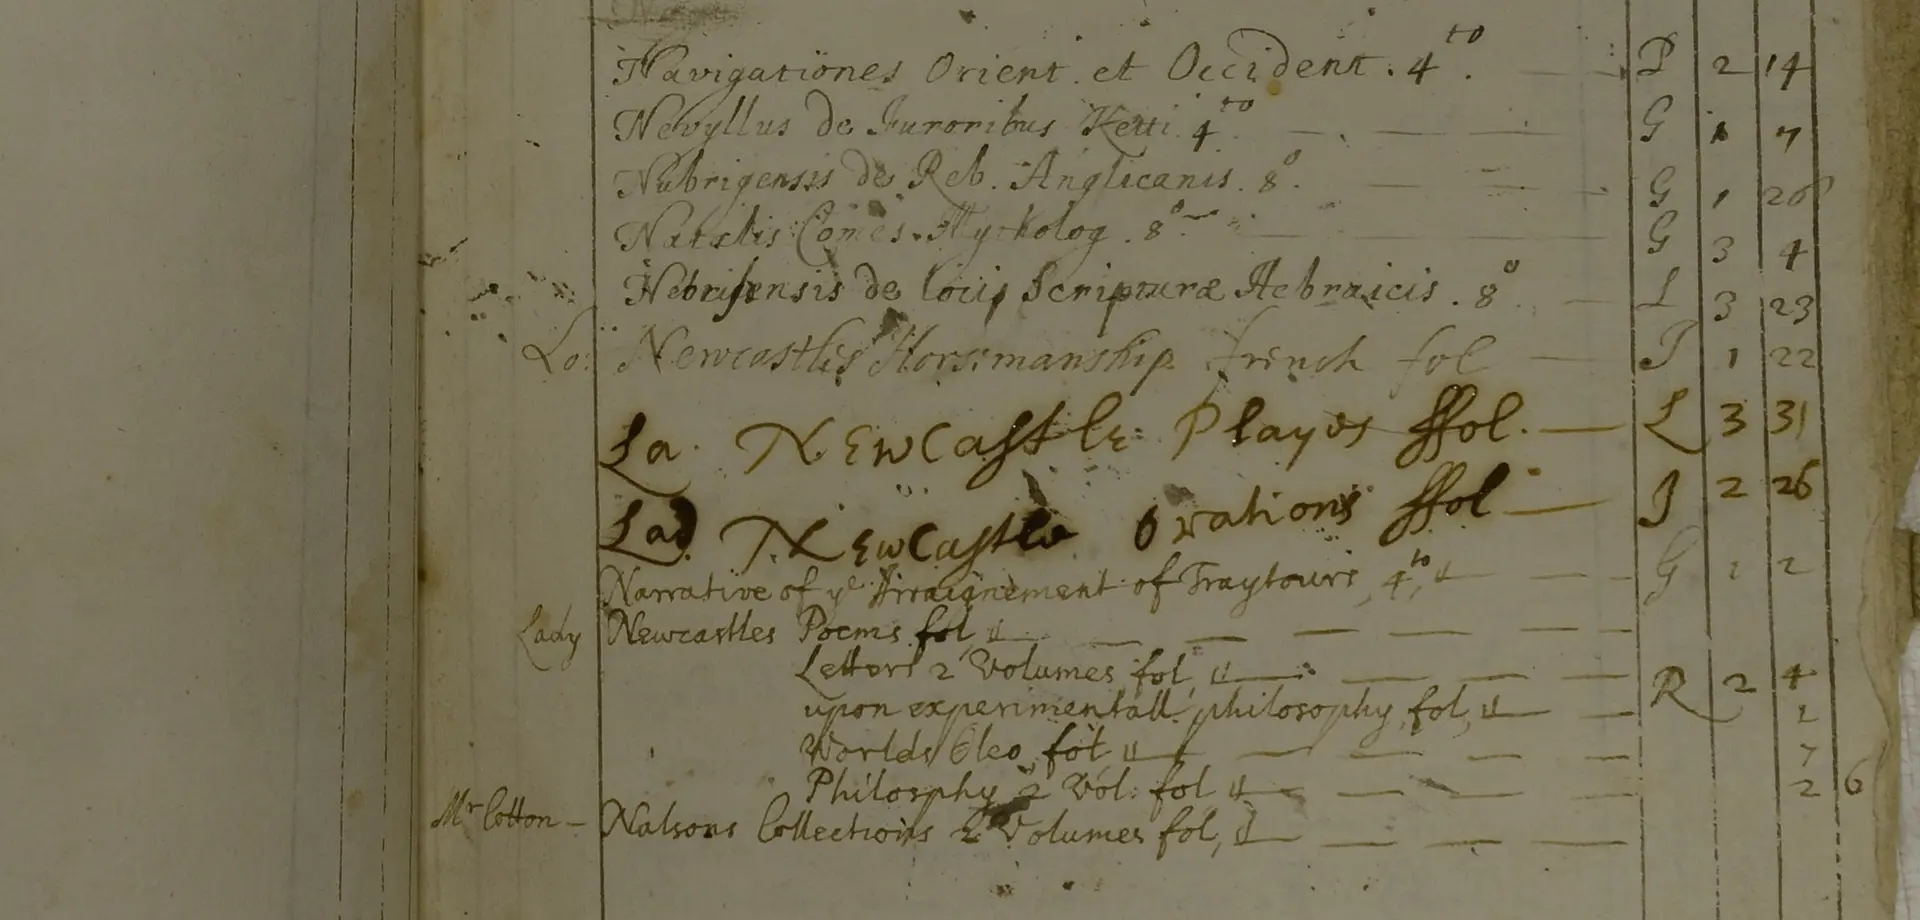 Navigationes Orient. et Occident. 4to. P 2 14
Nevyllus de Furoribus Ketti 4to G 1 7
Nubrigensis de Reb. Anglicanis. 8o. G 1 26
Natalis Comes. Mytholog. 8o G 3 4
Nebrissensis de locis Scripturæ Hebraicis. 8o L 3 23
Lo: Newcastles Horsmanship french fol I 1 22
La. Newcastle Playes ffol. L 3 31
Lad Newcastle Orations ffol I 2 26
Narrative of ye Arraignement of Traytours, 4to, G 1 2
Lady Newcastles Poems fol,
Letters 2 Volumes fol, R 2 4
upon experimentall philosophy, fol, 1
Worlds Oleo, fol 7
Philosphy 2 Vol: fol 2 6
Mr Cotton – Nalsons Collections 2 Volumes fol,